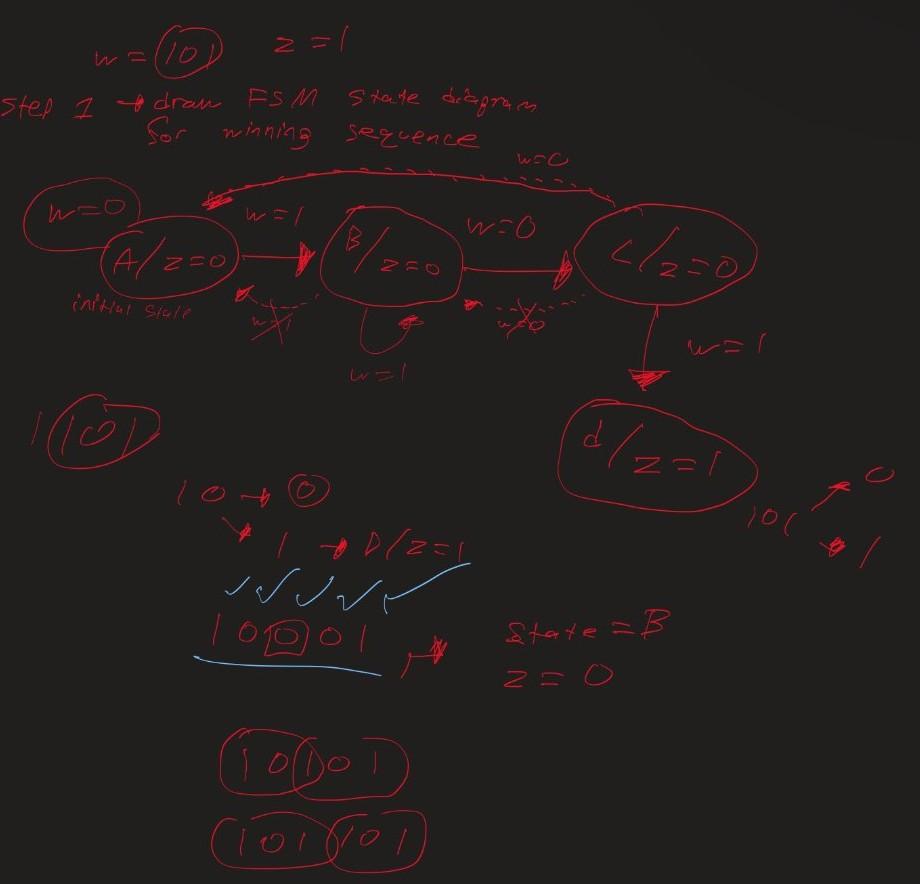 w = 101 z = 1
Step 1 → draw FSM state diagram
for winning sequence
w=0
w=0 w=1 w=0
A/z=0 B/z=0 C/z=0
initial state w=1 w=0
w=1 w=1
1101
d/z=1
10 → 0 101 → 0
1 → D/z=1 1
10001 → State = B
z = 0
10101
101101